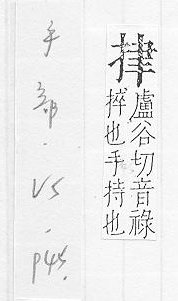 盧谷切音祿
捽也手持也
手部·VS·P45.